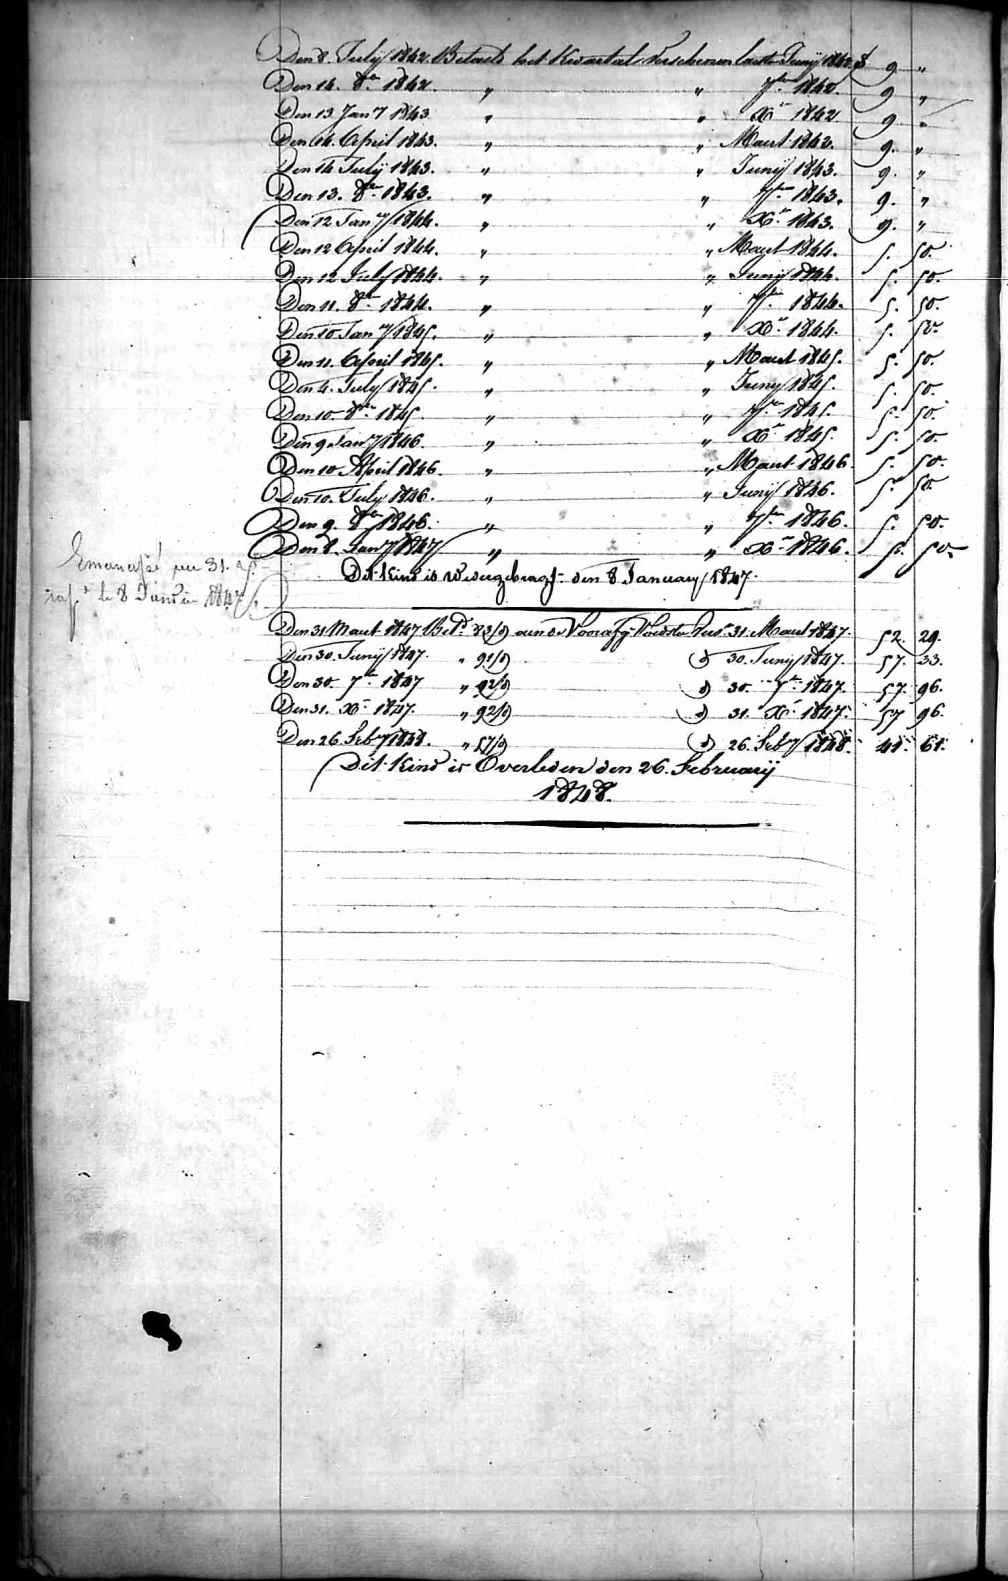 Den 8. July 1842. Betaald het Kwartaal Verschenen laatste Juny 1842. f 9 "
Den 14. 8br 1842. " " 7br 1842. 9 "
Den 13. Jany 1843. " " Xr 1842 9 "
Den 14. April 1843. " " Maart 1843. 9. "
Den 14 July 1843. " " Junij 1843. 9. "
Den 13. 8br 1843. " " 7br 1843. 9. "
Den 12 Jany 1844. " " Xr 1843. 9. "
Den 12 April 1844. " " Maart 1844. 5. 50.
Den 12 July 1844. " " Junij 1844. 5. 50.
Den 11. 8br 1844. " " 7br 1844. 5. 50.
Den 10 Jany 1845. " " Xr 1844. 5. 50
Den 11. April 1845. " " Maart 1845. 5. 50.
Den 4. July 1845. " " Juny 1845. 5. 50.
Den 10 8br 1845. " " 7br 1845. 5. 50.
Den 9 Jany 1846. " " Xr 1845. 5. 50.
Den 10 April 1846. " " Maart 1846. 5. 50.
Den 10. July 1846. " " Junij 1846. 5. 50.
Den 9. 8br 1846. " " 7br 1846. 5. 50.
Den 8. Jany 1847 " " Xr 1846. 5. 50.
Dit Kind is Wedergebragt den 8 January 1847.
le 8 Janvier 1847
Den 31 Maart 1847 Betd 83/d aan de Voorafg. Voedster tot 31. Maart 1847. 52. 29.
Den 30. Junij 1847. " 91/d d 30. Junij 1847. 57. 33.
Den 30. 7br 1847 " 92/d d 30. 7br 1847. 57. 96.
Den 31. Xr 1847. " 92/d d 31. Xr 1847. 57 96.
Den 26. Feby 1848. " 57/d d 26. Feby 1848. 41. 61.
Dit Kind is Overleden den 26. Februarij
1848.